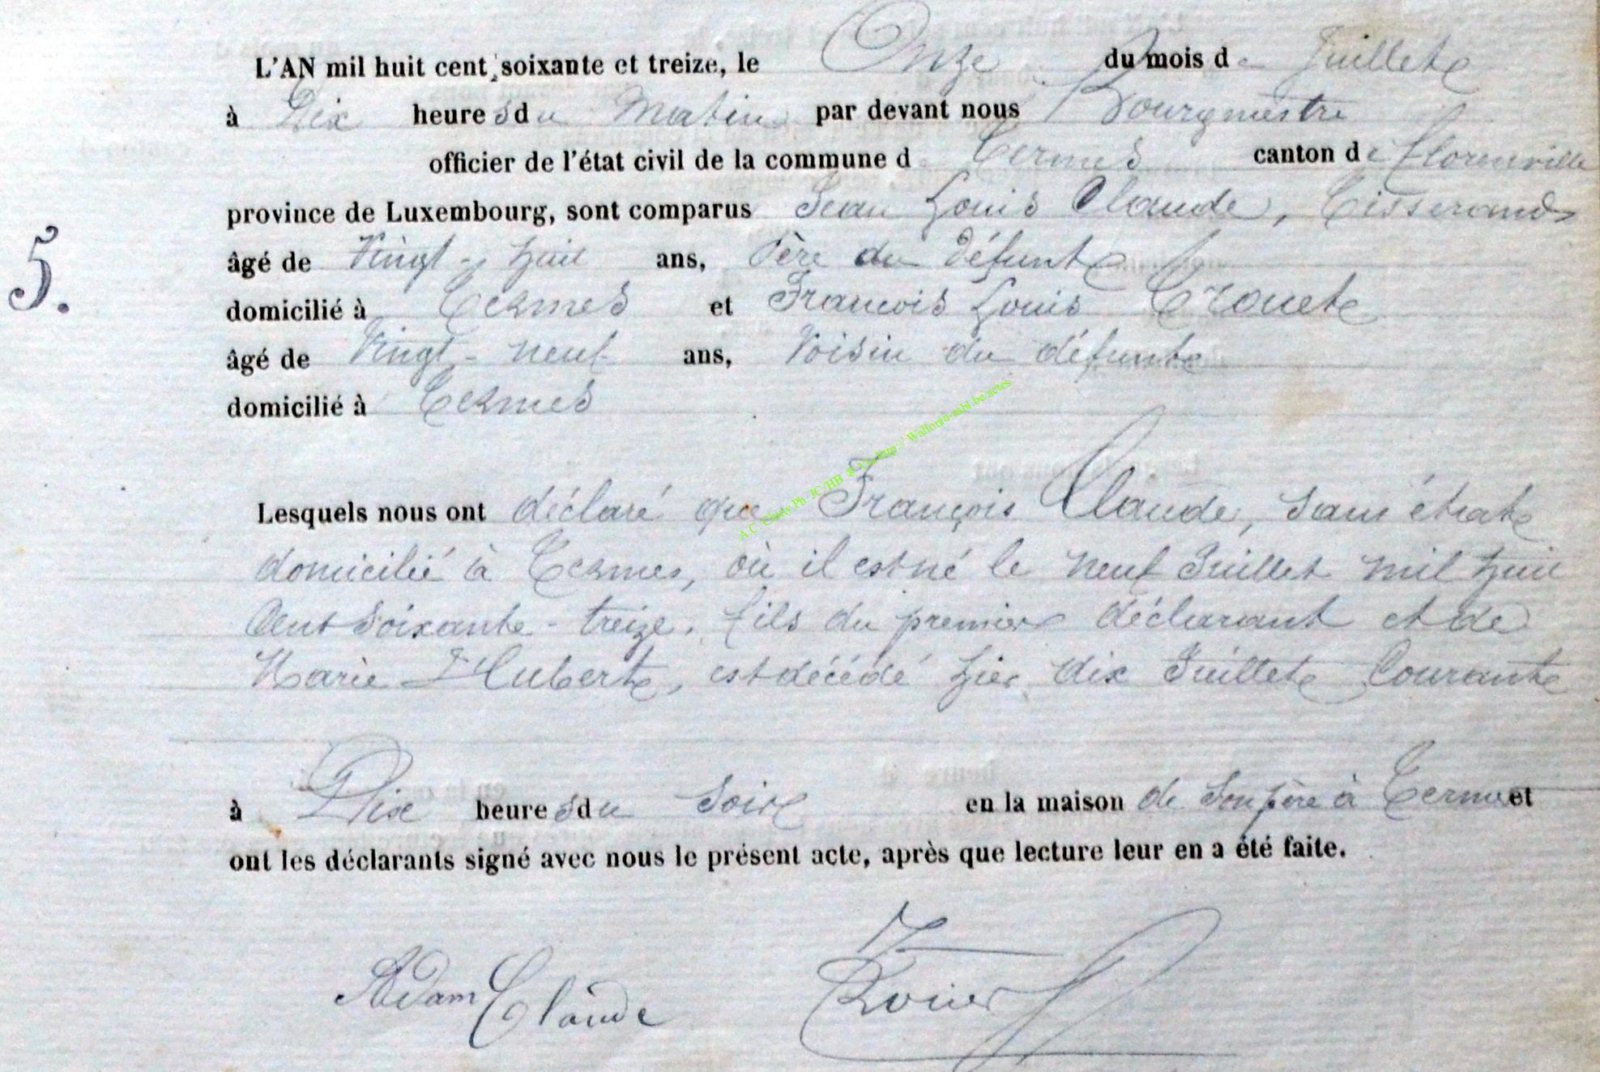 L'AN mil huit cent soixante et treize, le Onze du mois de Juillet
à Dix heures du Matin par devant nous Bourgmestre
officier de l'état civil de la commune de Termes canton de Florenville
province de Luxembourg, sont comparus Jean Louis Claude, Tisserand
5.
âgé de Vingt-huit ans, Père du défunt
domicilié à Termes et François Louis
âgé de Vingt-neuf ans, Voisin du défunt
domicilié à Termes
Lesquels nous ont déclaré que François Claude, sans état
domicilié à Termes, où il est né le neuf Juillet mil huit
Cent Soixante-treize, fils du premier déclarant et de
Marie d'Hubert, est décédé hier dix Juillet Courant
à Dix heures du Soir en la maison de Son père à Termes et
ont les déclarants signé avec nous le présent acte, après que lecture leur en a été faite.
Adam Claude